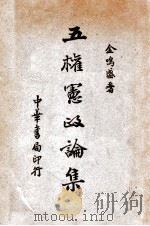 金鳴盛著
五權憲政論集
中華書局印行
www.gowutu.com